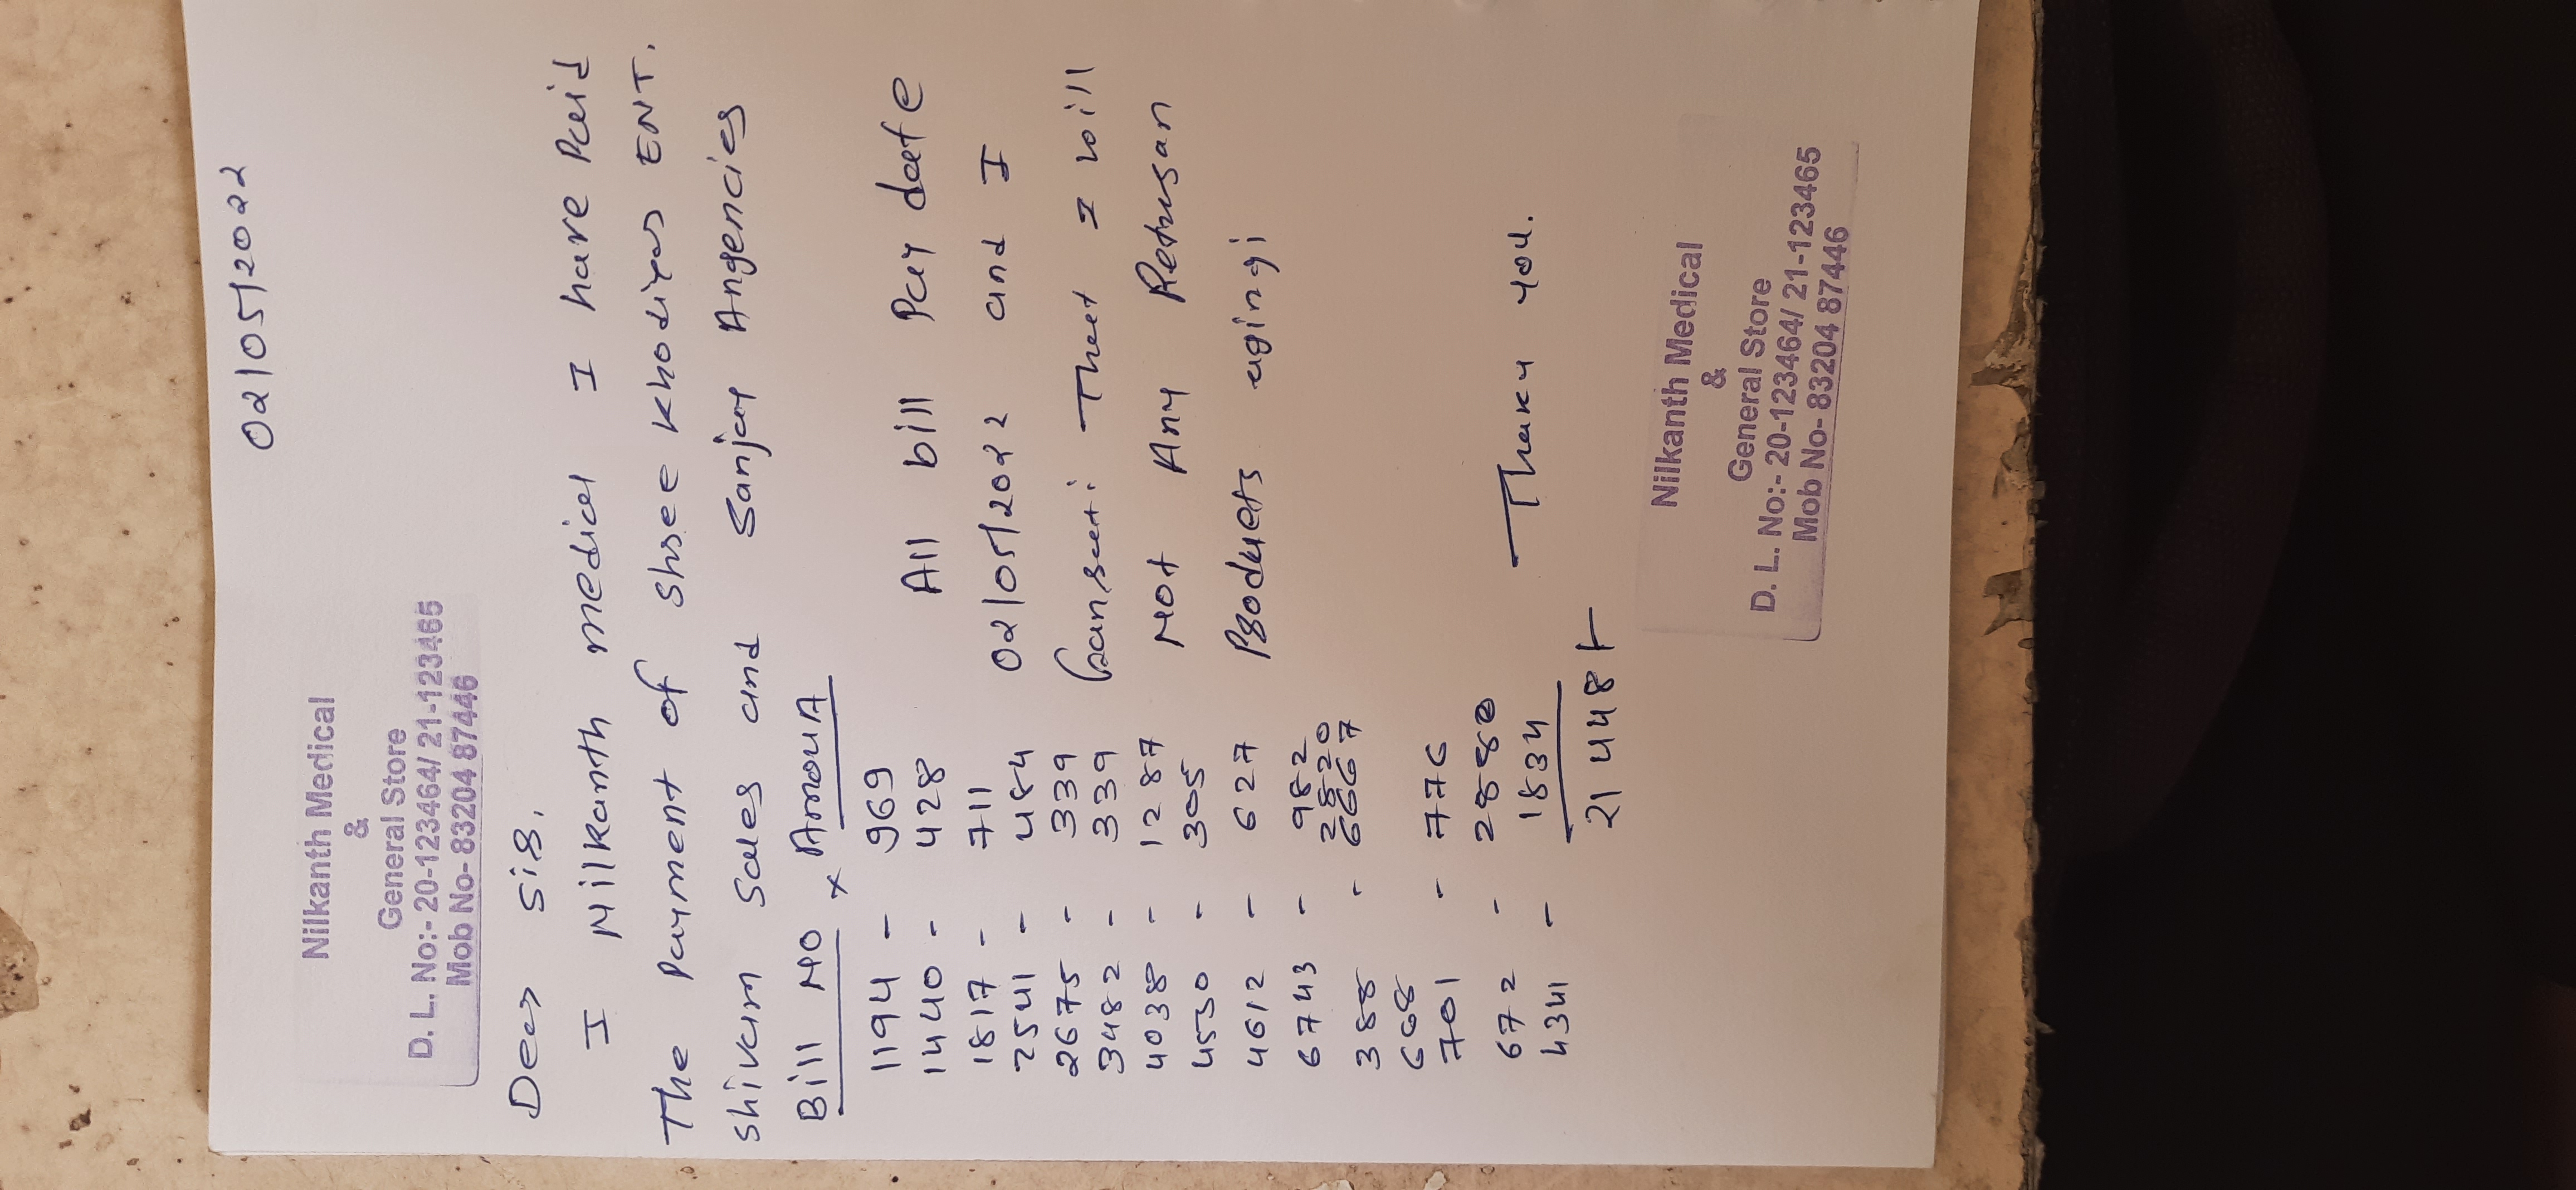 02/05/2022
Nilkanth Medical
&
General Store
D. L. No:- 20-123464/ 21-123465
Mob No- 83204 87446
Deer Sir,
I Nilkanth medical I have Paid
The Payment of Shree Khodiyar ENT.
Shivam Sales and Sanjay Angencies
Bill No x Amount
1194 - 969 All bill Pay date
1440 - 428
1817 - 711 02/05/2022 and I
2541 - 484
2675 - 339 That I will
3482 - 339
4038 - 1287 Not Any Retrusan
4530 - 305
4612 - 627 Products
6743 - 982
2820
388 - 6667
668
7701 - 776
672 - 2880 Thank you.
4341 - 1834
21448 F
Nilkanth Medical
&
General Store
D. L. No:- 20-123464/ 21-123465
Mob No- 83204 87446